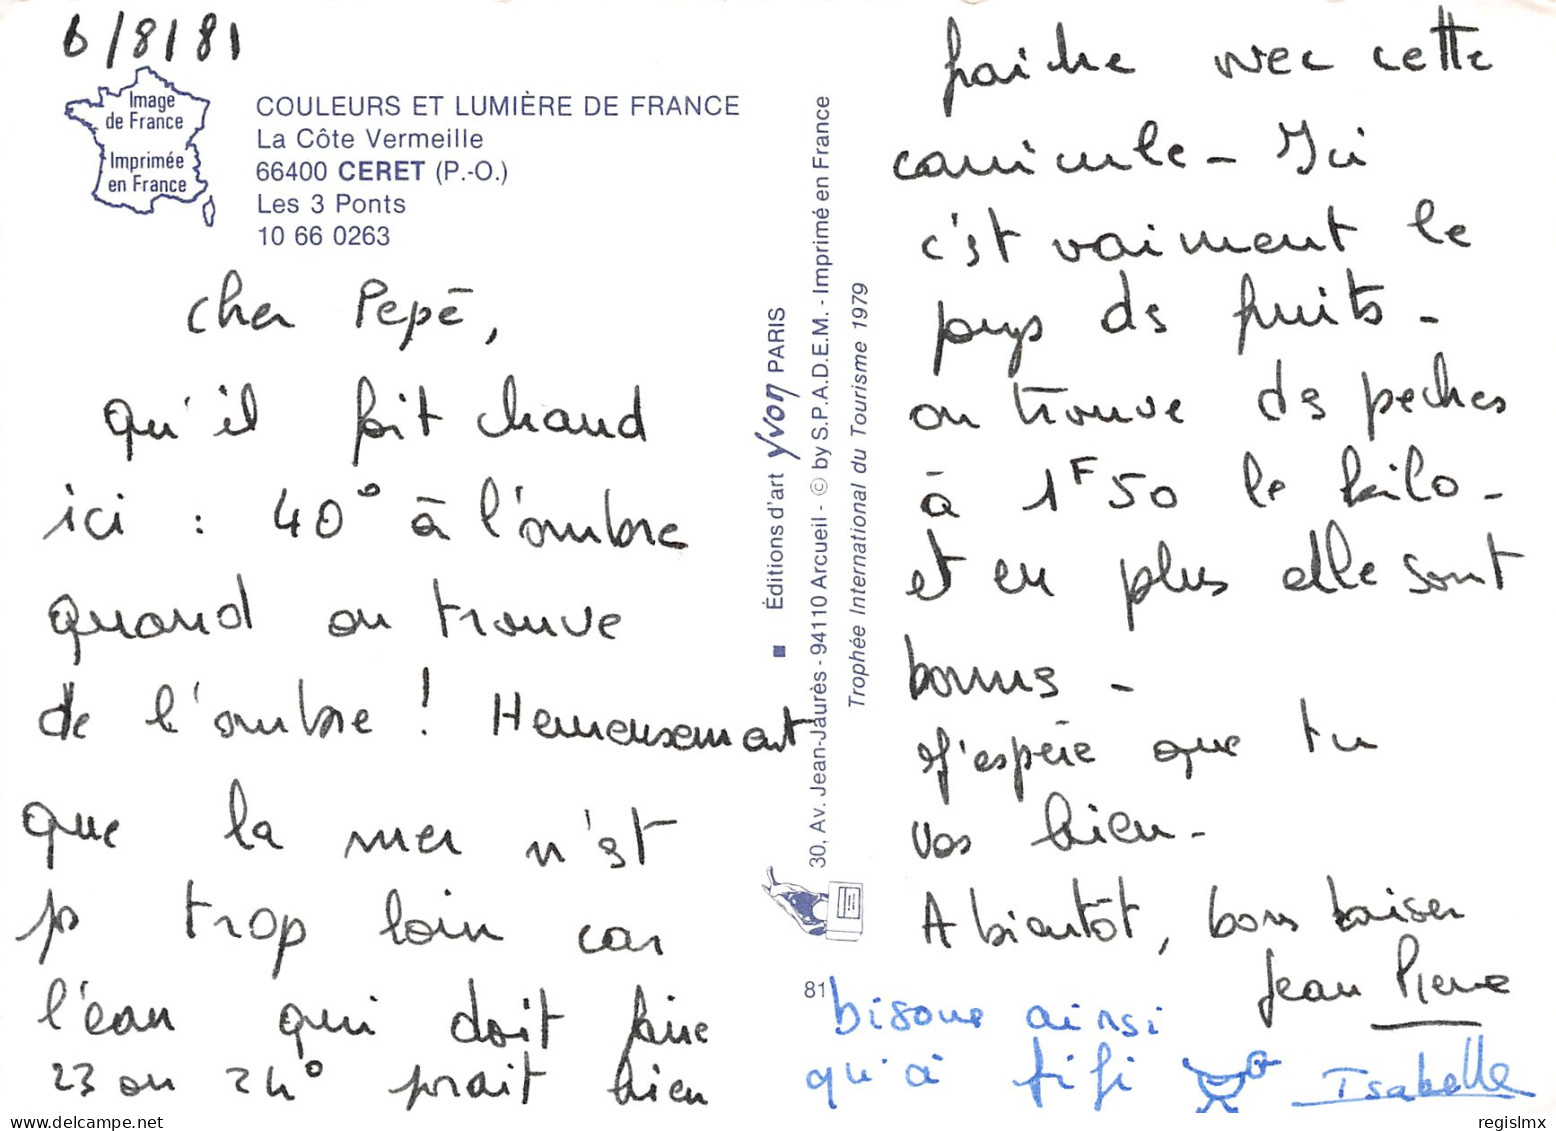 6/8/81
Image
de France
Imprimée
en France
COULEURS ET LUMIÈRE DE FRANCE
La Côte Vermeille
66400 CERET (P.-O.)
Les 3 Ponts
10 66 0263
Cher Pepé,
qu'il fait chaud
ici : 40° à l'ombre
quand on trouve
de l'ombre ! Heureusement
que la mer n'est
ps trop loin car
l'eau qui doit faire
23 ou 24° parait bien
■ Éditions d'art yvon PARIS
30, Av. Jean-Jaurès - 94110 Arcueil - © by S.P.A.D.E.M. - Imprimé en France
Trophée International du Tourisme 1979
81
fraiche avec cette
canicule - Ici
c'est vraiment le
pays ds fruits -
on trouve ds peches
à 1F50 le kilo -
et en plus elle sont
bonnes -
J'espère que tu
vas bien -
A bientôt, bons baiser
Jean Pierre
bisous ainsi
qu'à fifi
Isabelle
regislmx